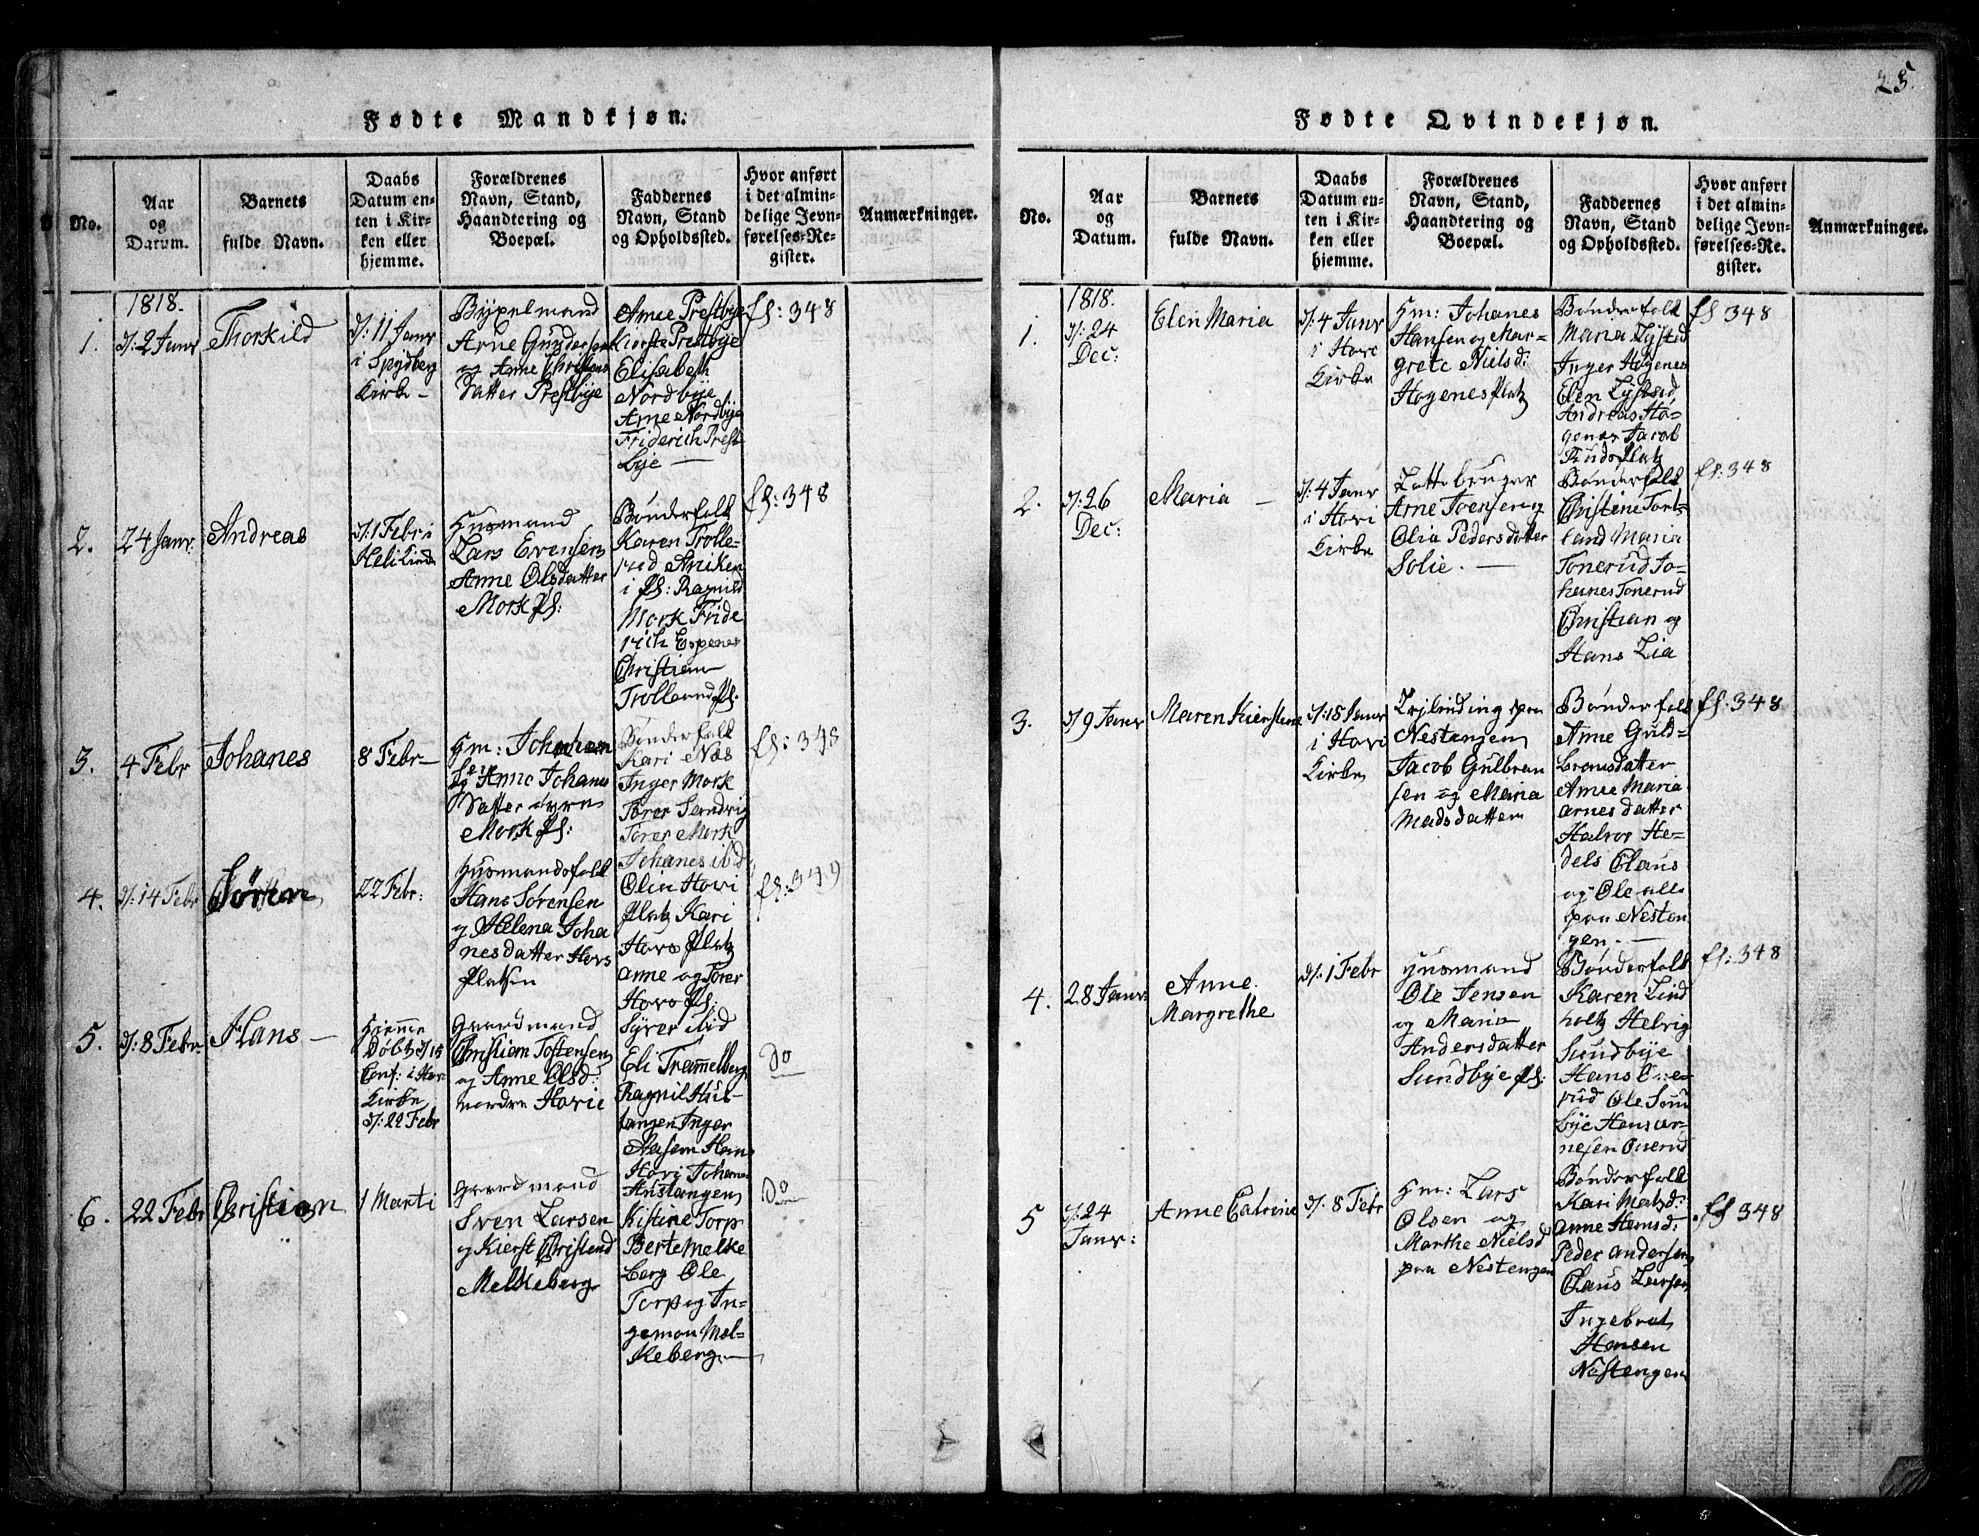 25.
Fødte Mandkjøn.
No.
Aar
og
Datum.
Barnets
fulde Navn.
Daabs
Datum en-
ten i Kir-
ken eller
hjemme.
Forældrenes
Navn, Stand,
Haandtering og
Boepæl.
Faddernes
Navn, Stand
og Opholdssted.
Hvor anført
i det almin-
delige Jevn-
førelses-Re-
gister.
Anmærkninger.
1818.
1.
d/: 2 Janr
Thorkild
d/: 11 Janr
i Spydberg
Kirke -
Arne
og Anne Christens
Datter Prestbye
Anne Prestbye
Kierste Prestbye
Elisabeth
Nordbye
Arne Nordbye
Friderich Prest
bye —
fs: 348
2.
24 Janr
Andreas
d/: 1 Febr i
Heli Kirke
Husmand
Lars Evensen
Anne Olsdatter
Mork Ps:
Bønderfolk
Karen Trolle-
rud Aniken
i Ps: Ragnild
Mork Fride
rich Espenes
Christian
Trollerud Ps.
fs: 348
3.
4 Febr
Johanes
8 Febr -
Hm: Johan
Anne Johanes
Datter
Mork Ps:
Bønderfolk
Kari Næs
Inger Mork
Torer Sandvig
Torer Mork
Johanes ibid
fs: 348
4.
d/: 14 Febr
Sören
22 Febr:
Husmandsfolk
Hans Sörensen
og Helena Joha
nesdatter Hovs
Platsen
Olia Hovi
Platz Kari
Hovs Platz
Anne og Torer
Hovs Ps:
fs: 349
5.
d/: 8 Febr
Hans —
Hiemme
Døbt d/15
Conf: i Hov
Kirke
d/: 22 Febr
Gaardmand
Christian Tostensen
og Anne Olsd:
nordre Hovie
Syver ibid
Eli Trammelberg
Ragnil Hus-
tangen Inger
Aasem Hans
Hovi Johanes
Hustangen
Do
6.
22 Febr
Christian
1 Marti
Gaardmand
Sven Larsen
og Kierst Christend
Melkeberg
Kistine Torp
Berte Melke
berg Ole
Torp og In-
gemon Mel-
keberg —
Do
Fødte Qvindekjøn.
No.
Aar
og
Datum.
Barnets
fulde Navn.
Daabs
Datum en-
ten i Kir-
ken eller
hjemme.
Forældrenes
Navn, Stand,
Haandtering og
Boepæl.
Faddernes
Navn, Stand
og Opholdssted.
Hvor anført
i det almin-
delige Jevn-
førelses-Re-
gister.
Anmærkninger.
1818.
1.
d/: 24
Dec:
Elen Maria
d/: 4 Janr
i Hovi
Kirke
Hm: Johanes
Hansen og Mar-
grete Nielsd:
Hogenes Platz
Bønderfolk
Maria Lysted
Inger Hogenes
Elen Lysted
Andreas Ho-
genes Jacob
Ruds Platz
fs 348
2.
d/: 26
Dec:
Maria —
d/: 4 Janr
i Hovi
Kirke
Arne Joensen og
Olia Pedersdatter
Solie. —
Bønderfolk
Christine Tort-
land Maria
Tonerud Jo-
hanes Tonerud
Christian og
Hans Lia
fs: 348
3.
d/ 9 Janr
Maren Kierstine
d/: 18 Janr
i Hovi
Kirke
paa
Nestangen
Jacob Gulbran
sen og Maria
Madsdatter
Bønderfolk
Anne Guld-
bransdatter
Anne Maria
arnesdatter
Halvor He-
dels Claus
og Ole alle
paa Nesten-
gen. —
fs: 348
4.
28 Janr
Anne
Margrethe
d/: 1 Febr
Husmand
Ole Jensen
og Maria
Andersdatter
Sundbye Ps:
Bønderfolk
Karen Lind
holtz Helvig
Sundbye
Hans
rud Ole Sun
bye Hans ar-
nesen
fs: 348
5
d/: 24
Janr:
Anne Catrine
d/: 8 Febr
Hm: Lars
Olsen og
Marthe Nielsd
paa Nestengen
Bønderfolk
Kari Matsd:
Anne Hansd:
Peder Andersen
Claus Larsen
Ingebret
Hansen
Nestengen
fs 348